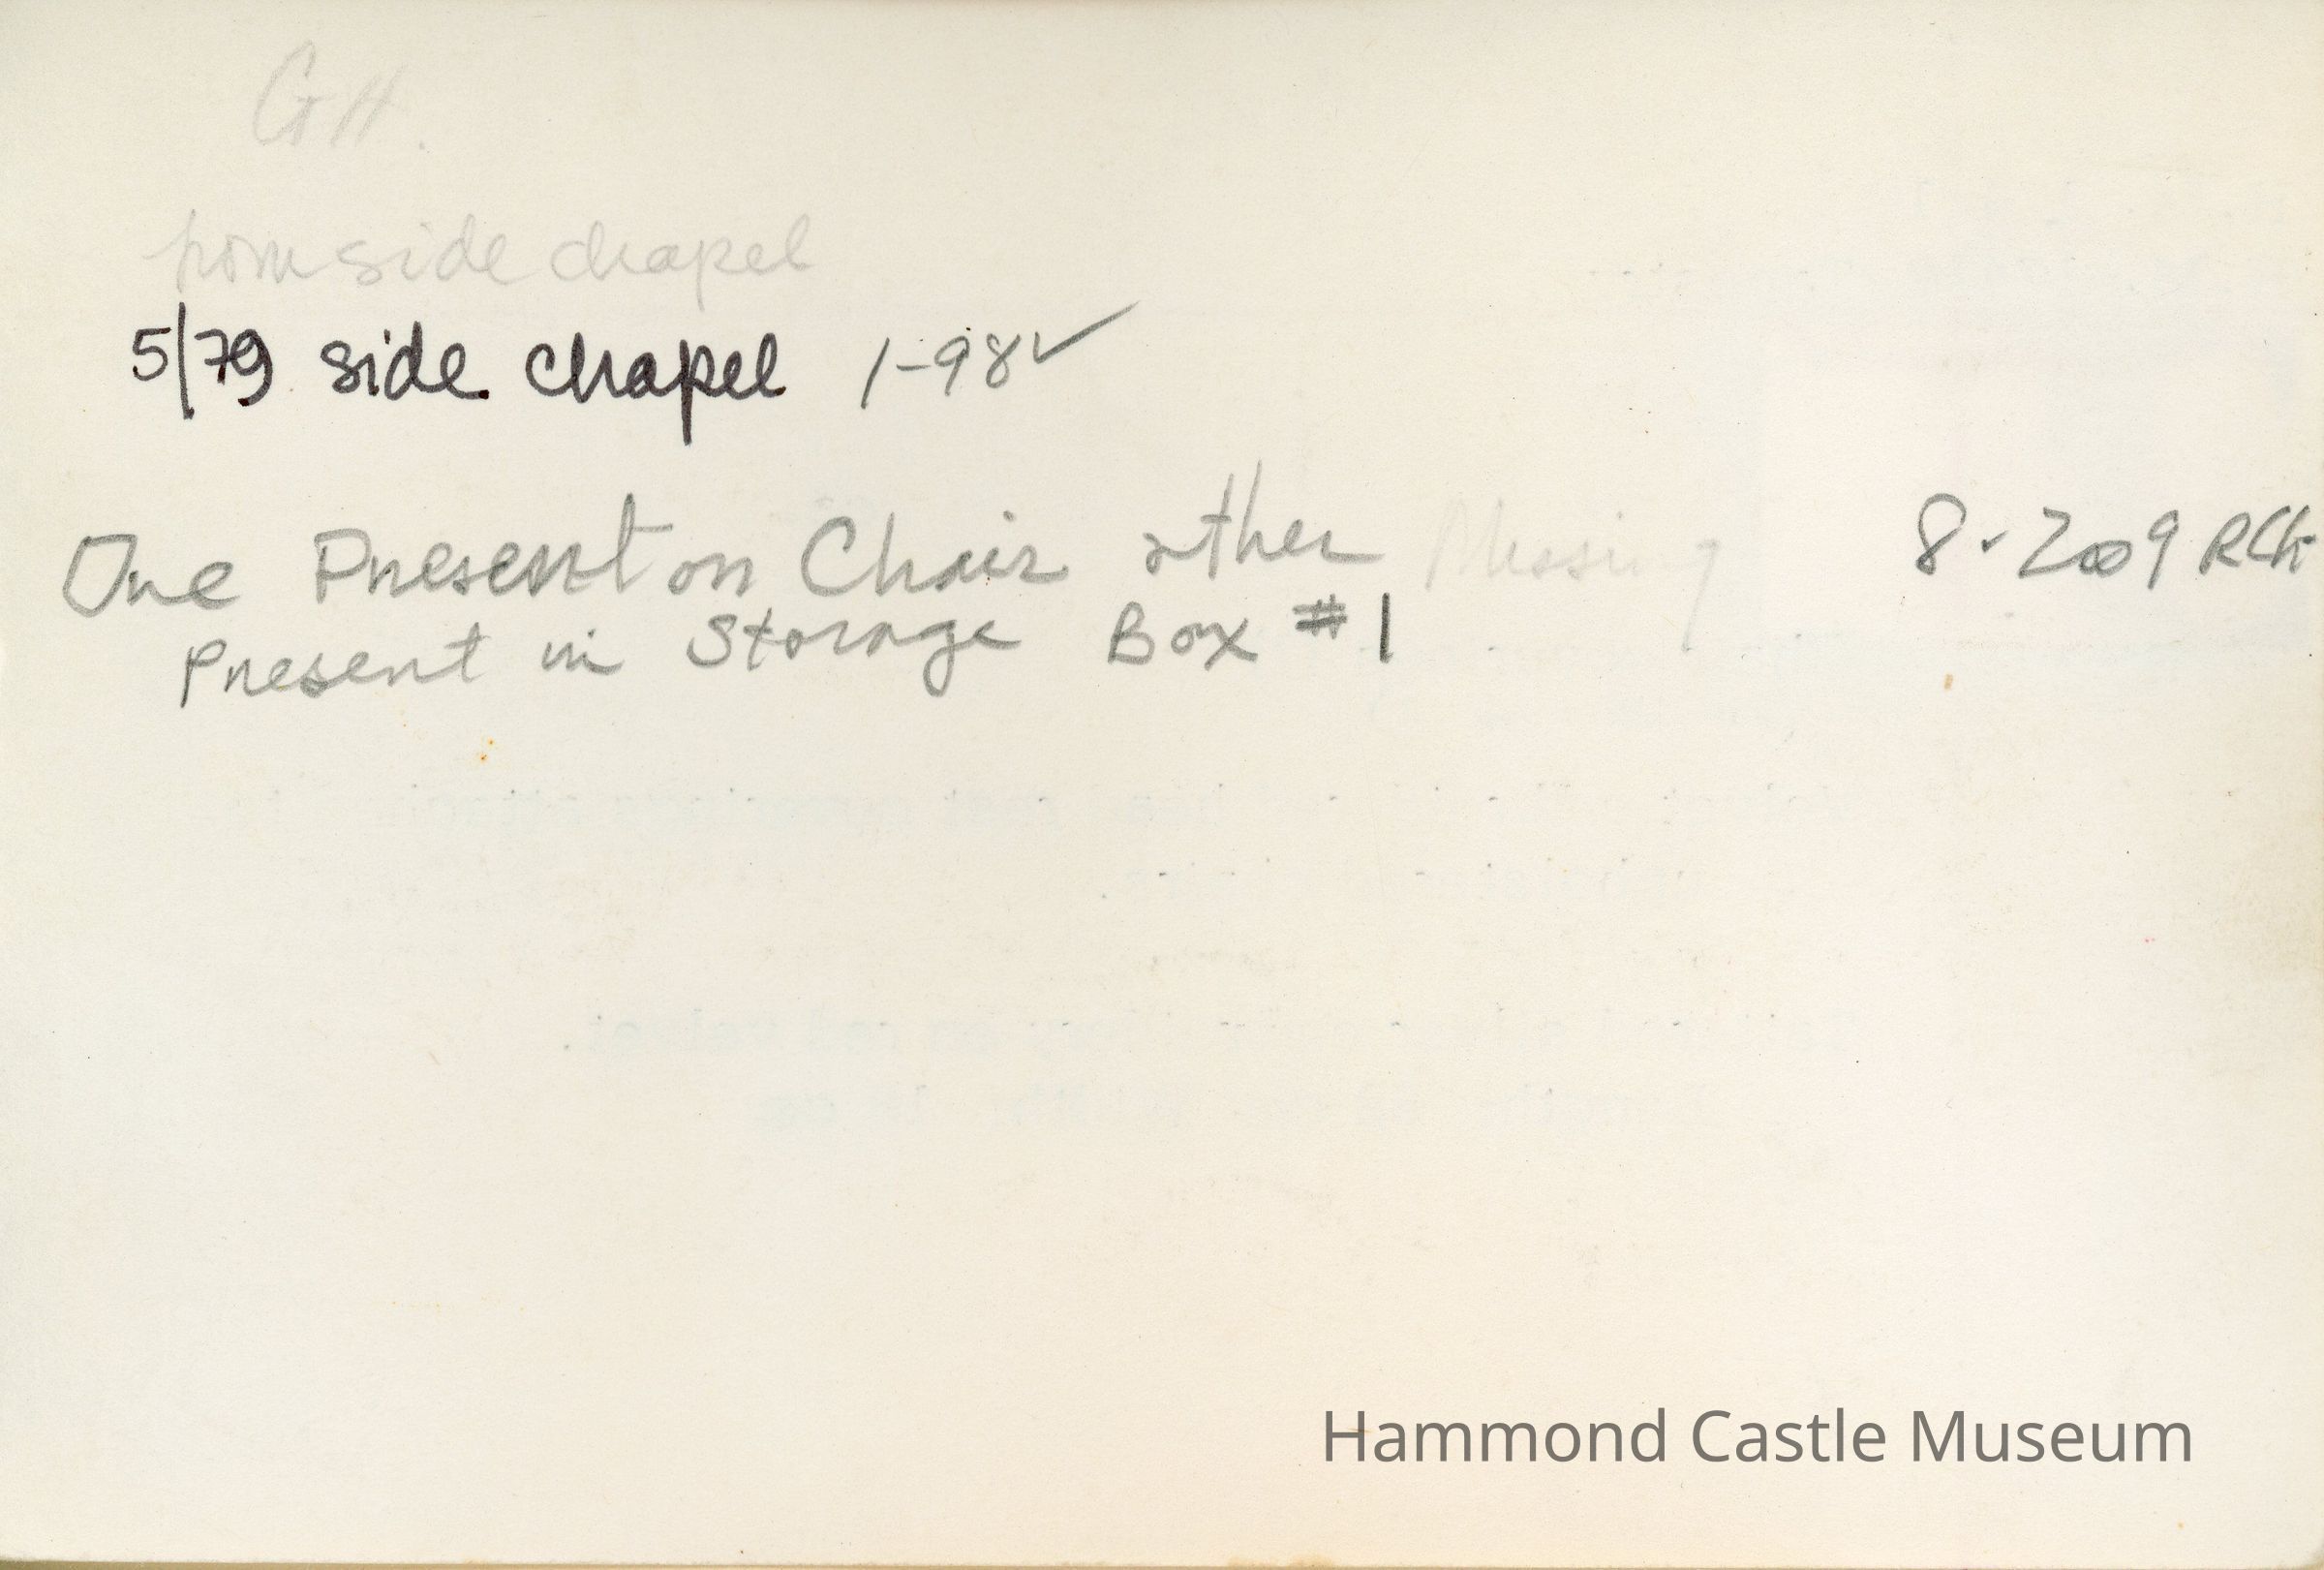 GH.
from side chapel
5/79 side chapel 1-98✓
One Present on Chair other Missing 8-2009 RCH
Present in Storage Box #1
Hammond Castle Museum